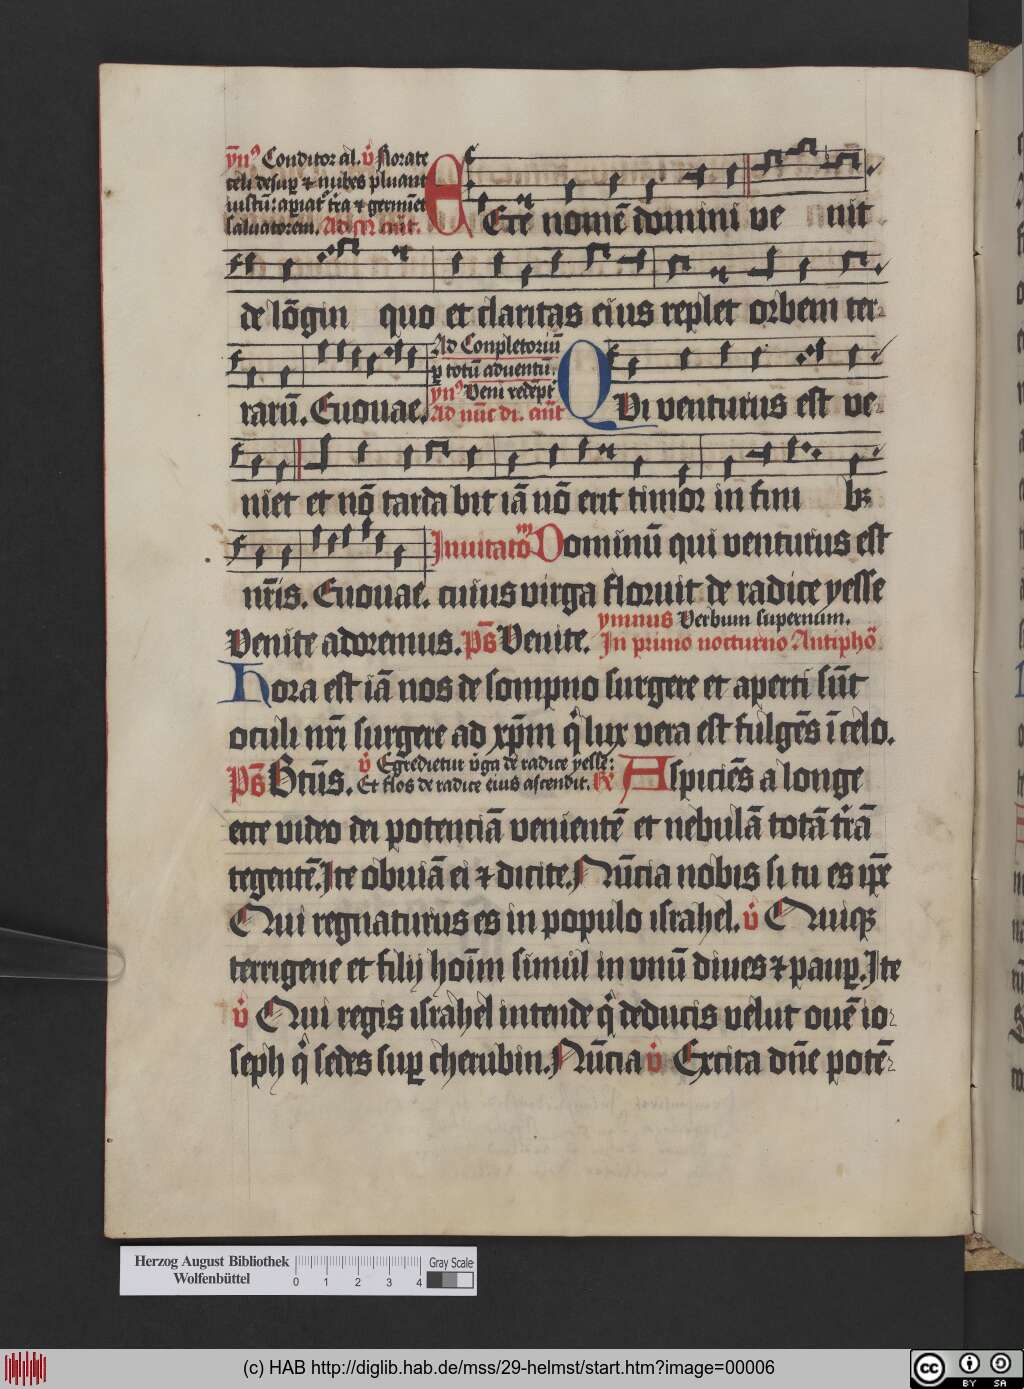 ȳn⁹ Conditor al. v̄ Rorate
celi desuꝑ ⁊ nubes pluant
iustū: aꝑiat᷑ t̄ra ⁊ germīet
saluatorem. Ad ānt.
Ecce nomē domini ve nit
de lō̄gin quo et claritas eius replet orbem ter-
rarū. Euouae. Ad Conpletoriū
ꝑ totū aduentū.
ȳn⁹ Veni redēpt᷑
Ad nūc di. ānt
QVi venturus est ve-
niet et nō tarda bit iā nō erit timor in fini bꝫ
nr̄is. Euouae. Inuitatoᵐ Dominū qui venturus est
cuius virga floruit de radice yesse
Venite adoremus. Ps̄ Venite. ymnus Verbum supernum.
In primo nocturno Antiphō
Hora est iā nos de sompno surgere et aperti sūt
oculi nr̄i surgere ad xp̄m q̇ lux vera est fulgēs ī celo.
Ps̄ Btūs. v̄ Egredietur v̄ga de radice yesse:
Et flos de radice eius ascendit. R̄ Aspiciēs a longe
ecce video dei potenciā venientē et nebulā totā t̄rā
tegentē. Ite obuiā ei ⁊ dicite. Nūcia nobis si tu es ip̄e
Qui regnaturus es in populo israhel. v̄ Quiqꝫ
terrigene et filij hoīm simul in vnū diues ⁊ pauꝑ. Ite
v̄ Qui regis israhel intende q̇ deducis velut ouē io-
seph q̇ sedes suꝑ cherubin. Nūcia v̄ Excita dn̄e potē-
Herzog August Bibliothek
Wolfenbüttel
0 1 2 3 4
Gray Scale
(c) HAB http://diglib.hab.de/mss/29-helmst/start.htm?image=00006
cc BY SA